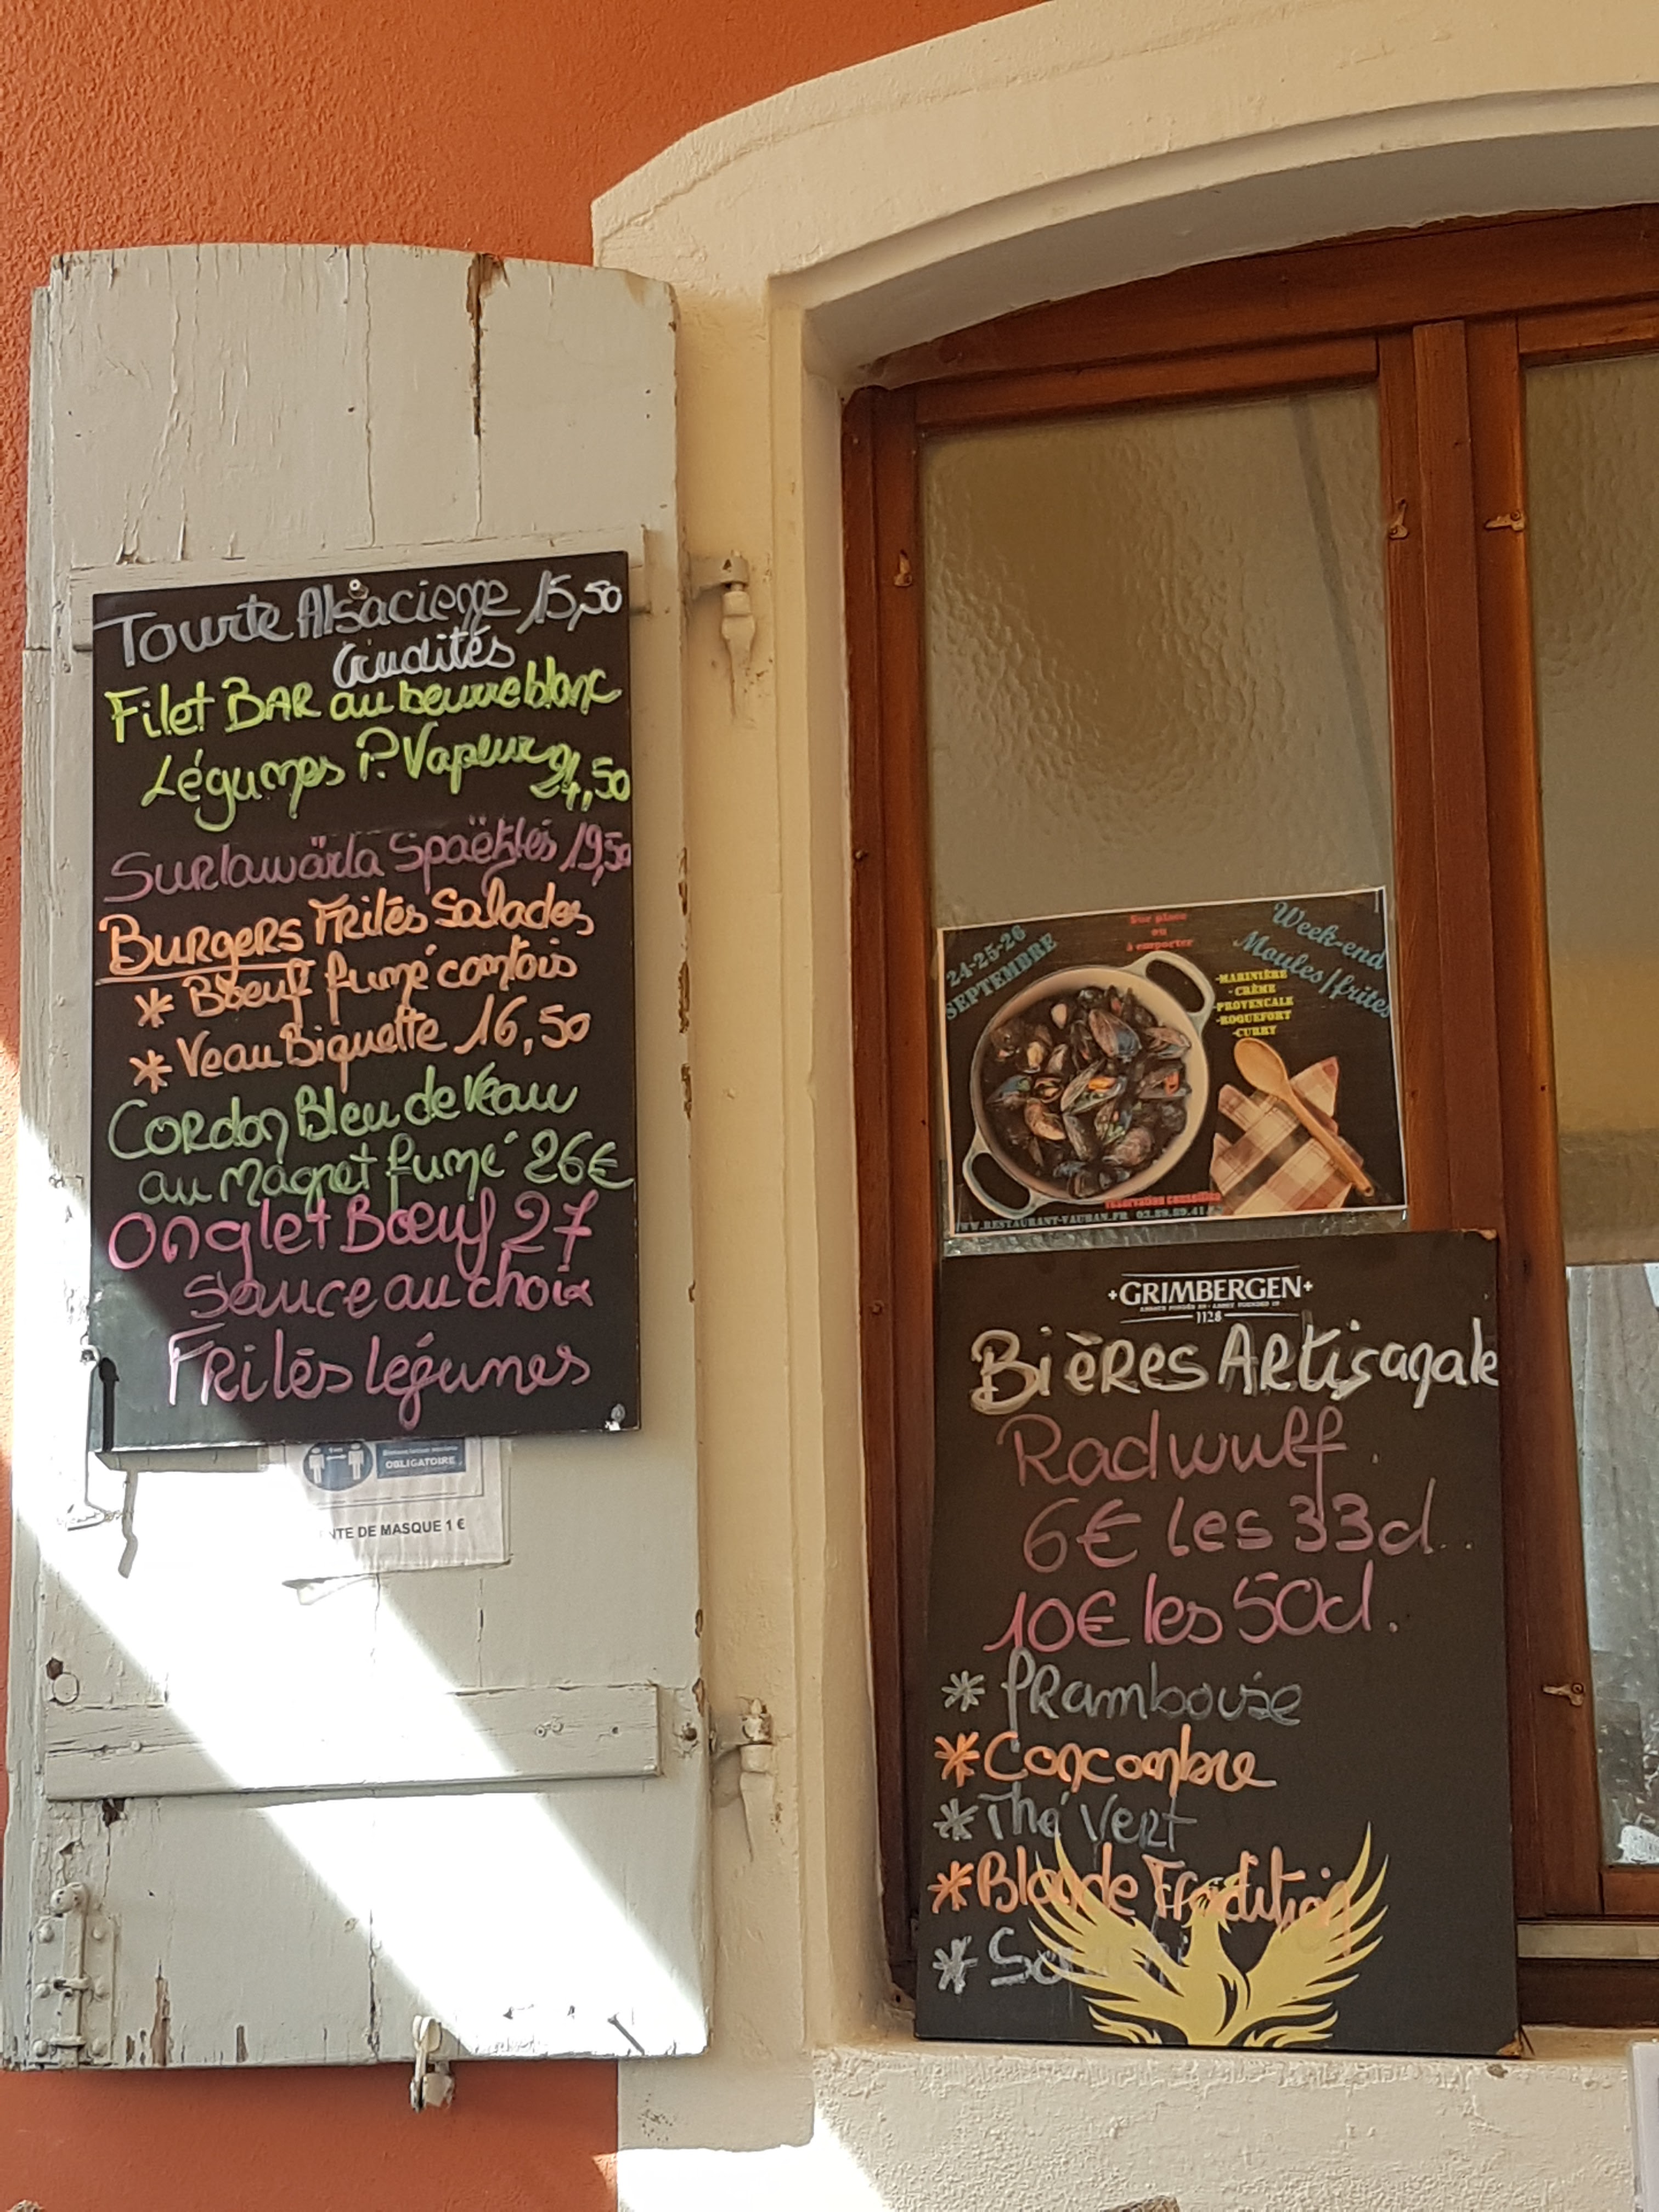 Tourte Alsacienne 15,50
Crudités
Filet BAR au beurre blanc
Légumes P. Vapeur 21,50
Surlawärla Spaëtzles 19,50
Burgers Frites Salades
* Bœuf fumé comtois
* Veau Biquette 16,50
Cordon Bleu de Veau
au magret fumé 26€
Onglet Bœuf 27
Sauce au choix
Frites légumes
OBLIGATOIRE
NTE DE MASQUE 1 €
24-25-26
SEPTEMBRE
Sur place
ou
à emporter
Week-end
Moules/frites
-MARINIÈRE
-CRÈME
-PROVENCALE
-ROQUEFORT
-CURRY
réservation conseillée
WWW.RESTAURANT-VAUBAN.FR 03.89.89.41
GRIMBERGEN
1128
Bières Artisanale
Radwulf.
6€ les 33cl..
10€ les 50cl.
* framboise
* Concombre
* Thé Vert
* Blonde Tradition
*